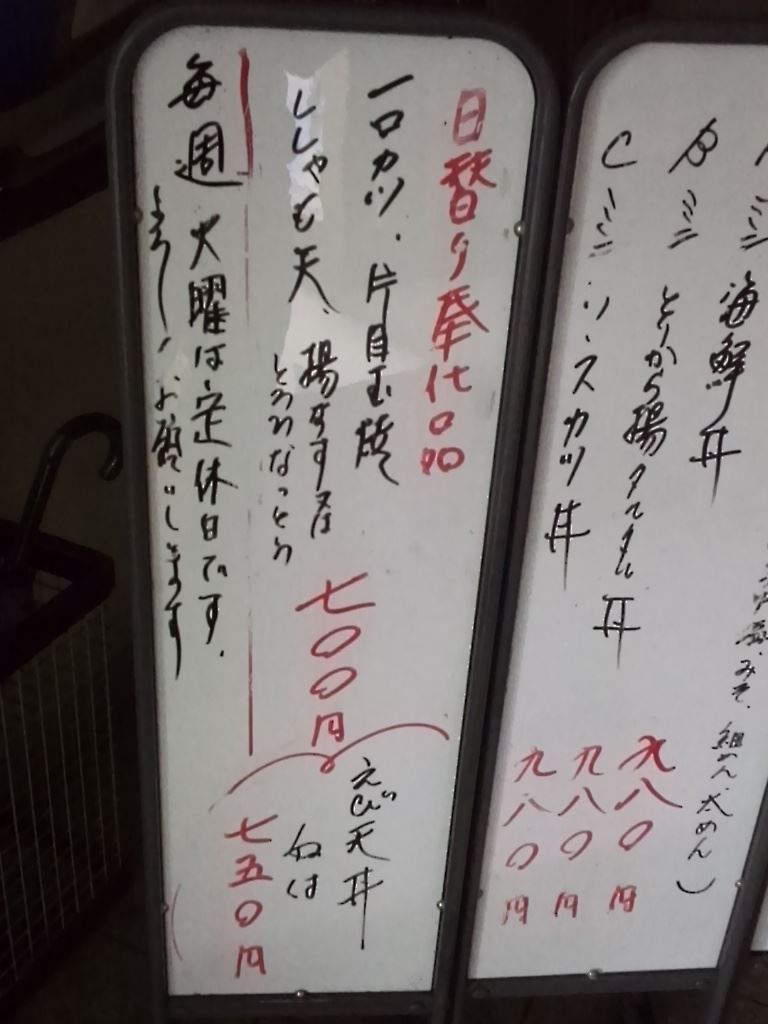 日替り奉仕品
一口カツ、片目玉焼
ししゃも天、揚なす又は
とろろなっとう
七〇〇円
えび天丼
七五〇円
毎週火曜は定休日です。
よろしくお願いします
みそ、細めん、太めん)
ミニ海鮮丼 九八〇円
B ミニとりから揚タルタル丼 九八〇円
C ミニソースカツ丼 九八〇円